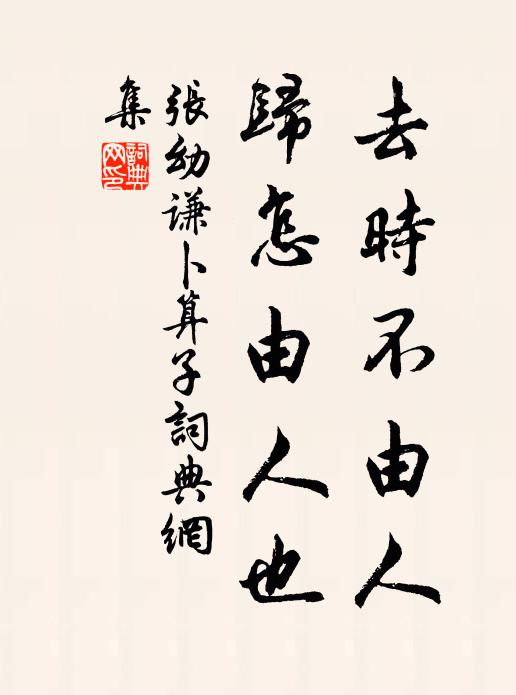 去時不由人
歸怎由人也
張幼謙卜算子詞典網
集
詞典
网印